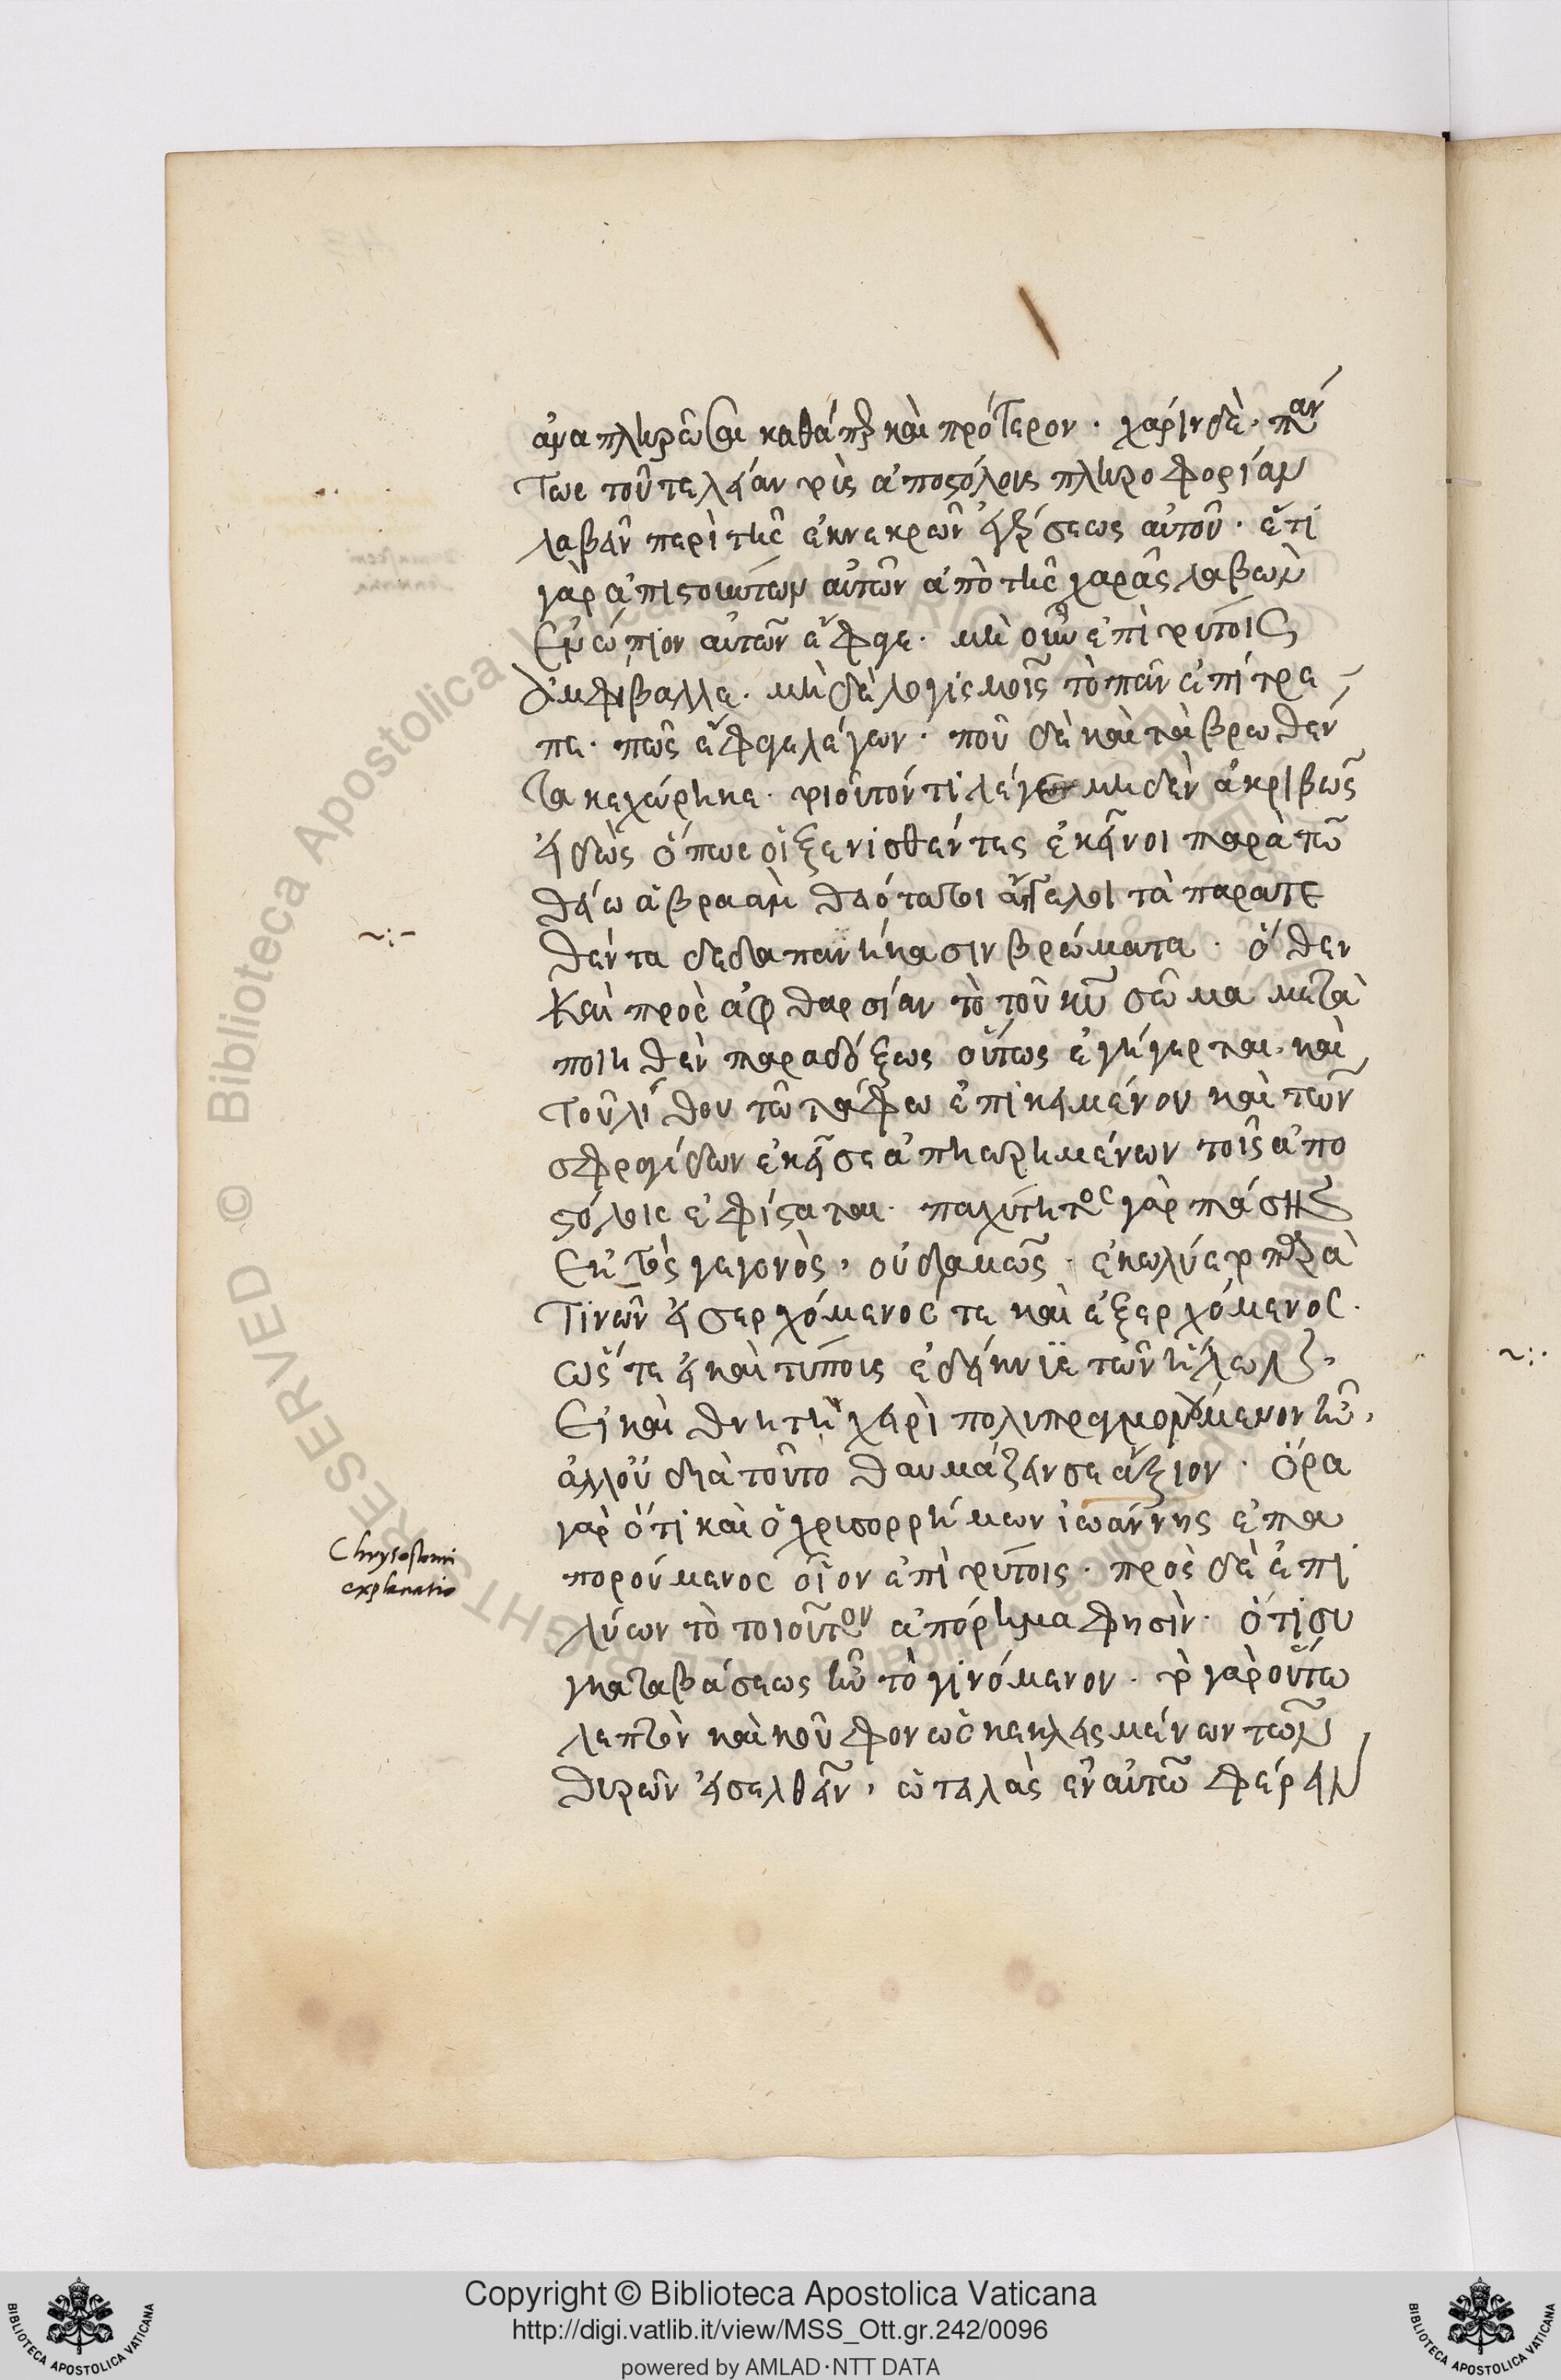 ἀναπληρῶσαι καθάπερ καὶ πρότερον · χάριν δὲ · παν
τως τοῦ τελείαν τοὺς ἀποστόλους πληροφορίαν
λαβεῖν περὶ τῆς ἐκνεκρῶν ἐγέρσεως αὐτοῦ · ἔτι
γὰρ ἀπιστούντων αὐτῶν ἀπὸ τῆς χαρᾶς λαβὼν
Ενώπιον αὐτῶν ἔφαγε · μὴ οὖν ἐπὶ τούτοις
ἀμφίβαλλε · μὴ δὲ λογισμοῖς τὸ πᾶν ἐπίτρε
πε · πῶς ἔφαγε λέγων · ποῦ δὲ καὶ τὰ βρωθέν
τα κεχώρηκε · τοιοῦτόν τι λέγε μηδὲν ἀκριβῶς
εἰδὼς ὅπως οἱ ξενισθέντες ἐκεῖνοι παρὰ τῶ
θείω ἀβραὰμ θειότατοι ἄγγελοι τὰ παρατε
θέντα δεδαπανήκασιν βρώματα · ὅθεν
Καὶ πρὸς ἀφθαρσίαν τὸ τοῦ κυ σῶμα μετα
ποιηθὲν παραδόξως οὕτως ἐγήγερται · καὶ
τοῦ λίθου τῶ τάφω ἐπικειμένου καὶ τῶν
σφραγίδων ἐκεῖσε ἀπηωρημένων τοῖς ἀπο
στόλοις ἐφίσταται · παχύτητος γὰρ πάσης
Εκτὸς γεγονὸς, οὐδαμῶς · ἐκωλύετο παρὰ
τινῶν εἰσερχόμενος τε καὶ ἐξερχόμενος ·
ὥστε εἰ καὶ τύποις ἐδείκνυε τῶν ἥλων,
Ει καὶ θνητῆ χειρὶ πολυπραγμονούμενον ἦν,
ἀλλ οὐ διὰ τοῦτο θαυμάζειν σε ἄξιον · Ὅρα
γὰρ ὅτι καὶ ὁ χρυσορρήμων ἰωάννης ἐπα
πορούμενος οἷον ἐπὶ τούτοις · πρὸς δὲ ἐπι
λύων τὸ τοιοῦτον ἀπόρημα φησὶν · ὅτι συ
γκαταβάσεως ἦν τὸ γινόμενον · τὸ γὰρ οὕτω
λεπτὸν καὶ κοῦφον ὡς κεκλεισμένων τῶν
θυρῶν εἰσελθεῖν, ἀτελὲς ἐν αὐτῶ φέρειν
Chrysostomi
explanatio
Copyright © Biblioteca Apostolica Vaticana
http://digi.vatlib.it/view/MSS_Ott.gr.242/0096
powered by AMLAD·NTT DATA